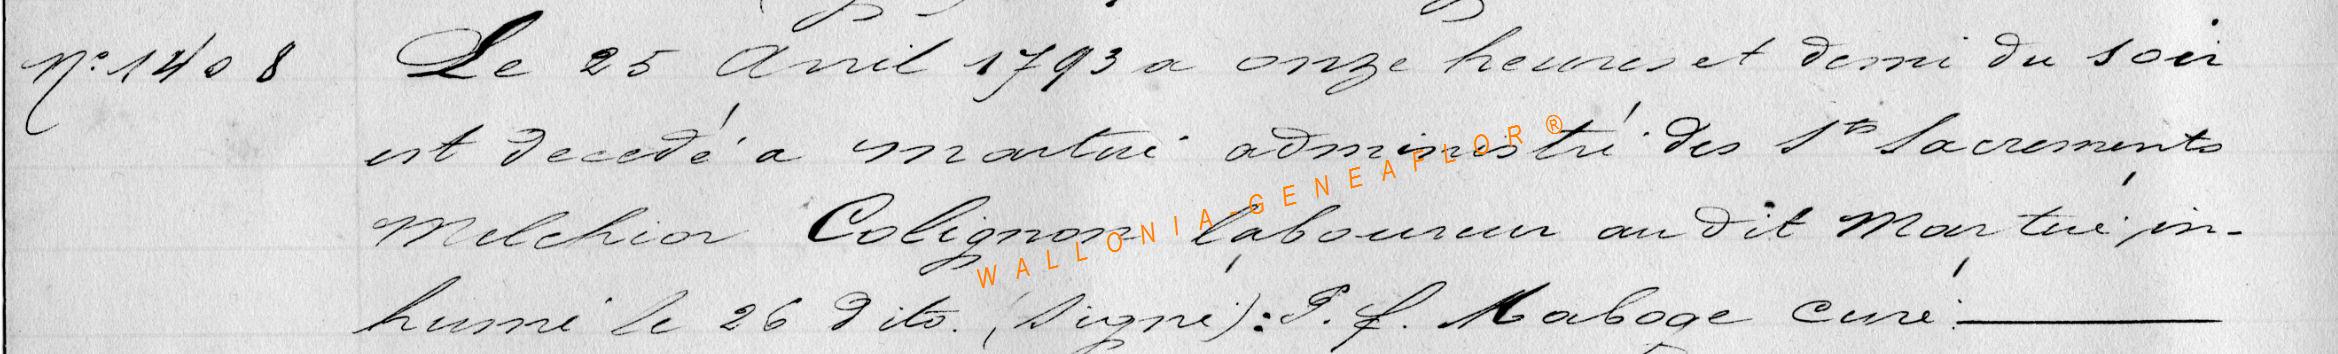 N° 1408 Le 25 Avril 1793 a onze heures et demi du soir
est decedé a martué administré des Sts Sacrements
Melchior Colignon laboureur au dit Martué, in-
humé le 26 dito. (Signé): P. f. Maboge curé.
WALLONIA-GENEAFLOR®